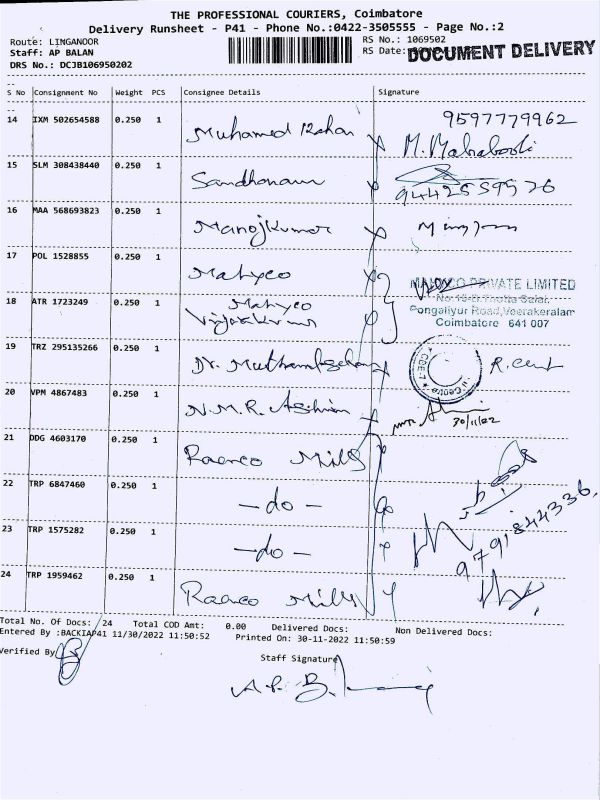 THE PROFESSIONAL COURIERS, Coimbatore
Delivery Runsheet - P41 - Phone No.:0422-3505555 - Page No.:2
Route: LINGANOOR
RS No.: 1069502
Staff: AP BALAN
RS Date:
DOCUMENT DELIVERY
DRS No.: DCJB106950202
S No Consignment No Weight PCS Consignee Details Signature
14 IXM 502654588 0.250 1 Muhamed 9597779962
M.
15 SLM 308438440 0.250 1 Sandhanam
9442559576
16 MAA 568693823 0.250 1 Manojkumar
17 POL 1528855 0.250 1 Mahyco
PRIVATE LIMITED
18 ATR 1723249 0.250 1 Mahyco
Vijayakumar
Pongaliyur Road, Veerakeralam
Coimbatore 641 007
19 TRZ 295135266 0.250 1 Dr.
20 VPM 4867483 0.250 1 N.M.R.
30/11/22
21 DDG 4603170 0.250 1 Raenco Mills
22 TRP 6847460 0.250 1 -do-
9791844336
23 TRP 1575282 0.250 1 -do-
24 TRP 1959462 0.250 1 Raenco Mills
Total No. Of Docs: 24 Total COD Amt: 0.00 Delivered Docs: Non Delivered Docs:
Entered By :BACKIAP41 11/30/2022 11:50:52 Printed On: 30-11-2022 11:50:59
Verified By
Staff Signature
A.P. B